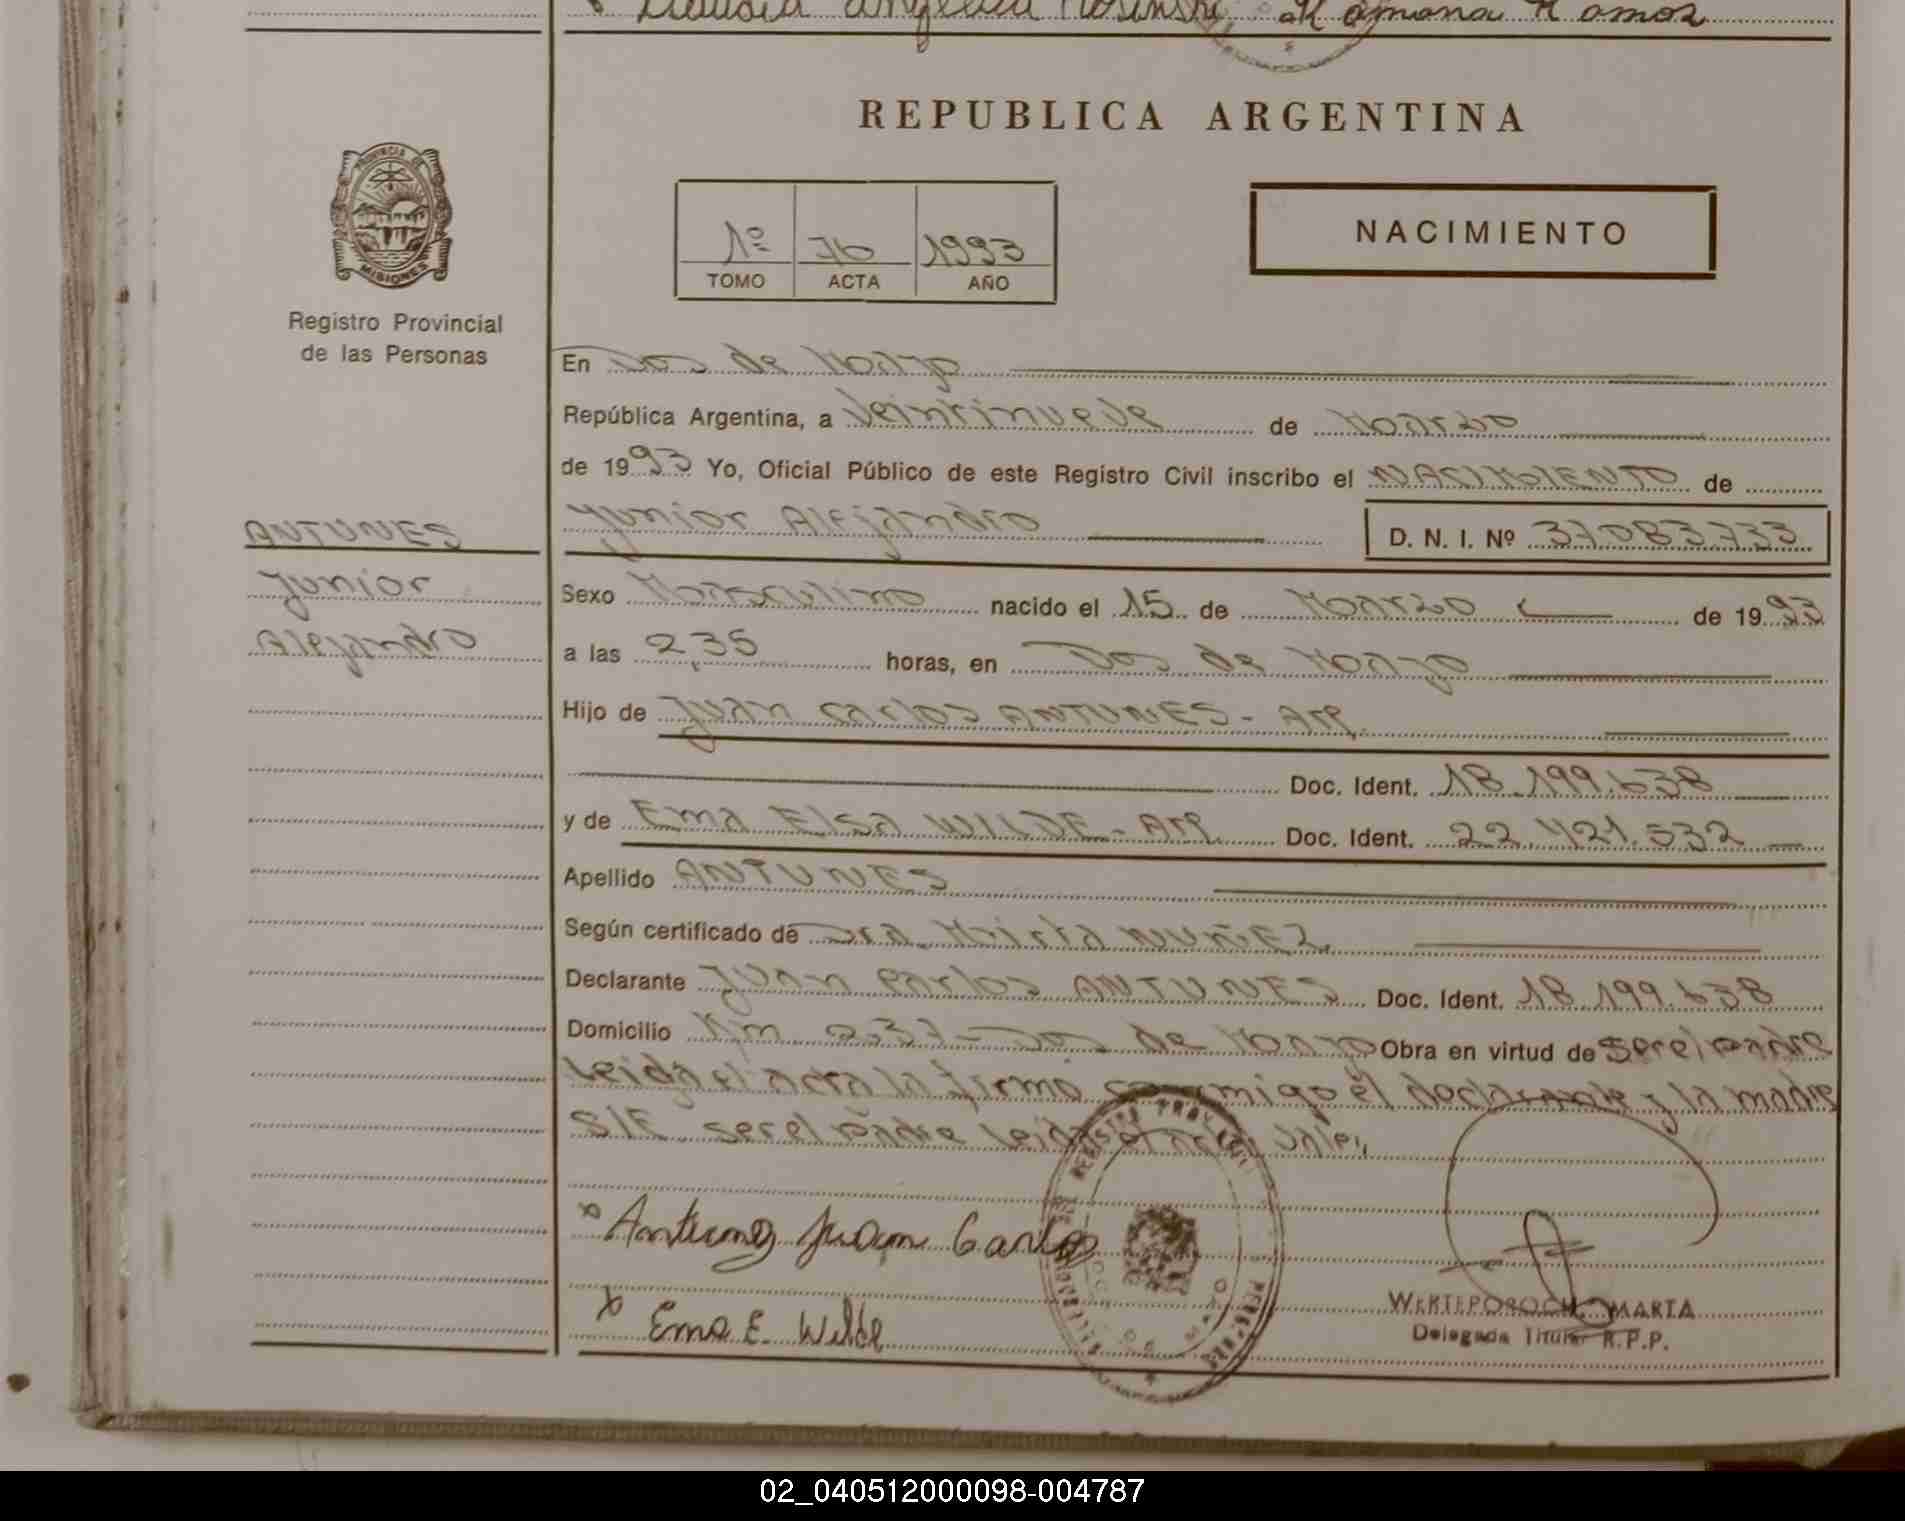 Claudia Angelica Kosinski Ramona Ramos
REPUBLICA ARGENTINA
PROVINCIA DE
MISIONES
Registro Provincial
de las Personas
1º 76 1993
TOMO ACTA AÑO
NACIMIENTO
En Dos de Mayo
República Argentina, a Veintinueve de Marzo
de 1993 Yo, Oficial Público de este Registro Civil inscribo el NACIMIENTO de
Junior Alejandro
D. N. I. Nº 37.083.733
ANTUNES
Junior
Alejandro
Sexo Masculino nacido el 15 de Marzo de 1993
a las 2,35 horas, en Dos de Mayo
Hijo de Juan Carlos ANTUNES - Arg.
Doc. Ident. 18.199.638
y de Ema Elsa WILDE - Arg. Doc. Ident. 22.421.532
Apellido ANTUNES
Según certificado de Dra. Mirta NUÑEZ.
Declarante Juan Carlos ANTUNES Doc. Ident. 18.199.638
Domicilio Km 237 - Dos de Mayo Obra en virtud de ser el padre
Leida el acta la firma conmigo el declarante y la madre
S/E ser el padre Leida el acta Vale.
x Antunes Juan Carlos
x Ema E. Wilde
MARTA
Delegada Titular R.P.P.
02_040512000098-004787